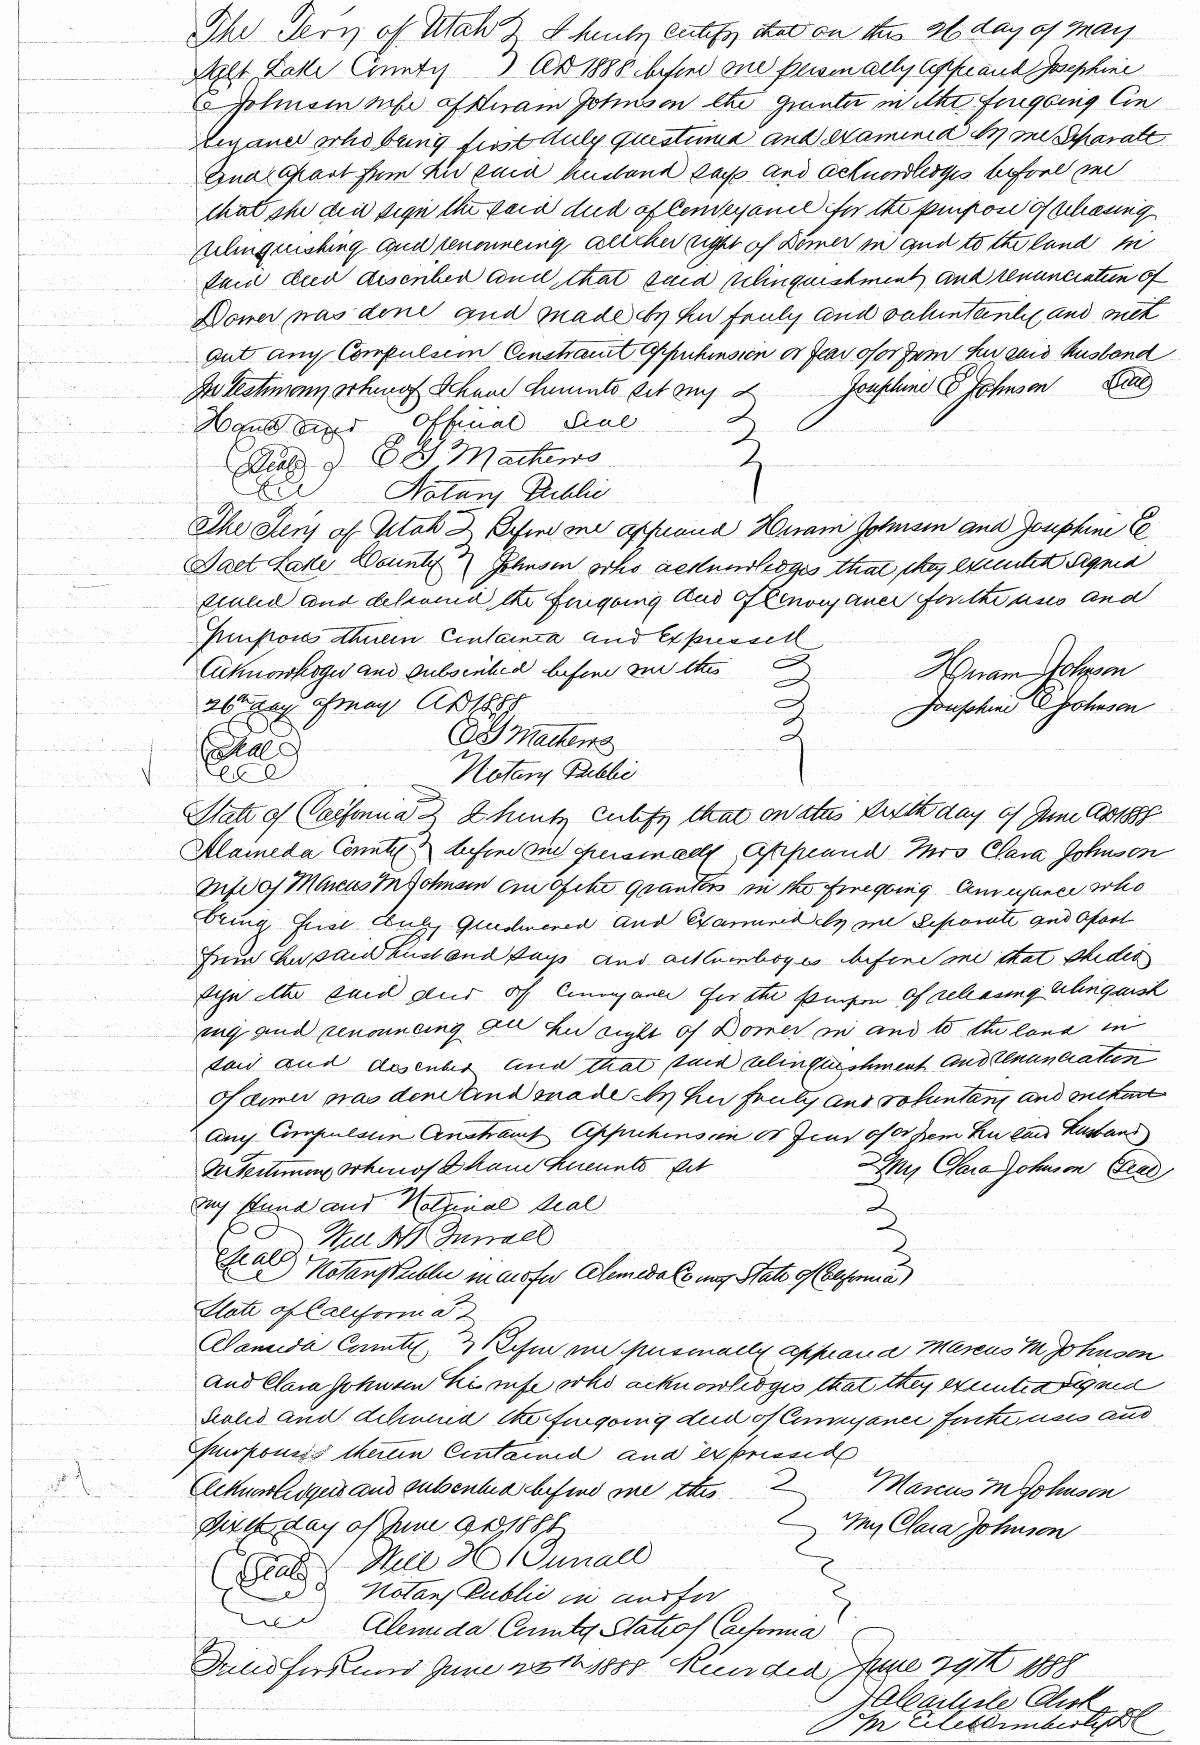 The Tery of Utah } I hereby certify that on this 26 day of May
Salt Lake County } AD 1888 before me personally appeared Josephine
E Johnson wife of Hiram Johnson the grantor in the foregoing Con
veyance who being first duly questioned and examined by me Separate
and apart from her said husband says and acknowledges before me
that she did sign the said deed of Conveyance for the purpose of releasing
relinquishing and renouncing all her right of Dower in and to the land in
said deed described and that said relinquishment and renunciation of
Dower was done and made by her freely and voluntarily and with
out any Compulsion Constraint Apprehension or fear of or from her said husband
In testimony whereof I have hereunto set my } Josephine E Johnson Seal
Hand and Official Seal
(Seal) E G Mathews
Notary Public
The Tery of Utah } Before me appeared Hiram Johnson and Josephine E
Salt Lake County } Johnson who acknowledges that they executed signed
sealed and delivered the foregoing deed of Conveyance for the uses and
purposes therein Contained and expressed
Acknowledged and subscribed before me this } Hiram Johnson
26th day of May AD 1888 } Josephine E Johnson
(Seal) E G Mathews
Notary Public
State of California } I hereby certify that on this Sixth day of June AD 1888
Alameda County } before me personally appeared Mrs Clara Johnson
wife of Marcus M Johnson one of the grantors in the foregoing Conveyance who
being first duly Questioned and Examined by me Separate and apart
from her said husband says and acknowledges before me that she did
sign the said deed of Conveyance for the purpose of releasing relinquish
ing and renouncing all her right of Dower in and to the land in
said and described and that said relinquishment and renunciation
of dower was done and made by her freely and voluntary and without
any Compulsion Constraint Apprehension or fear of or from her said husband
In testimony whereof I have hereunto set } My Clara Johnson Seal
my Hand and Notarial Seal
Will H Burrall
(Seal) Notary Public in and for Alemeda County State of California
State of California }
Alameda County } Before me personally appeared Marcus M Johnson
and Clara Johnson his wife who acknowledges that they executed signed
Sealed and delivered the foregoing deed of Conveyance for the uses and
purposes therein Contained and expressed
Acknowledged and subscribed before me this } Marcus M Johnson
Sixth day of June AD 1888 My Clara Johnson
(Seal) Will H Burrall
Notary Public in and for
Alemeda County State of California
Filed for Record June 28th 1888 Recorded June 29th 1888
Clerk